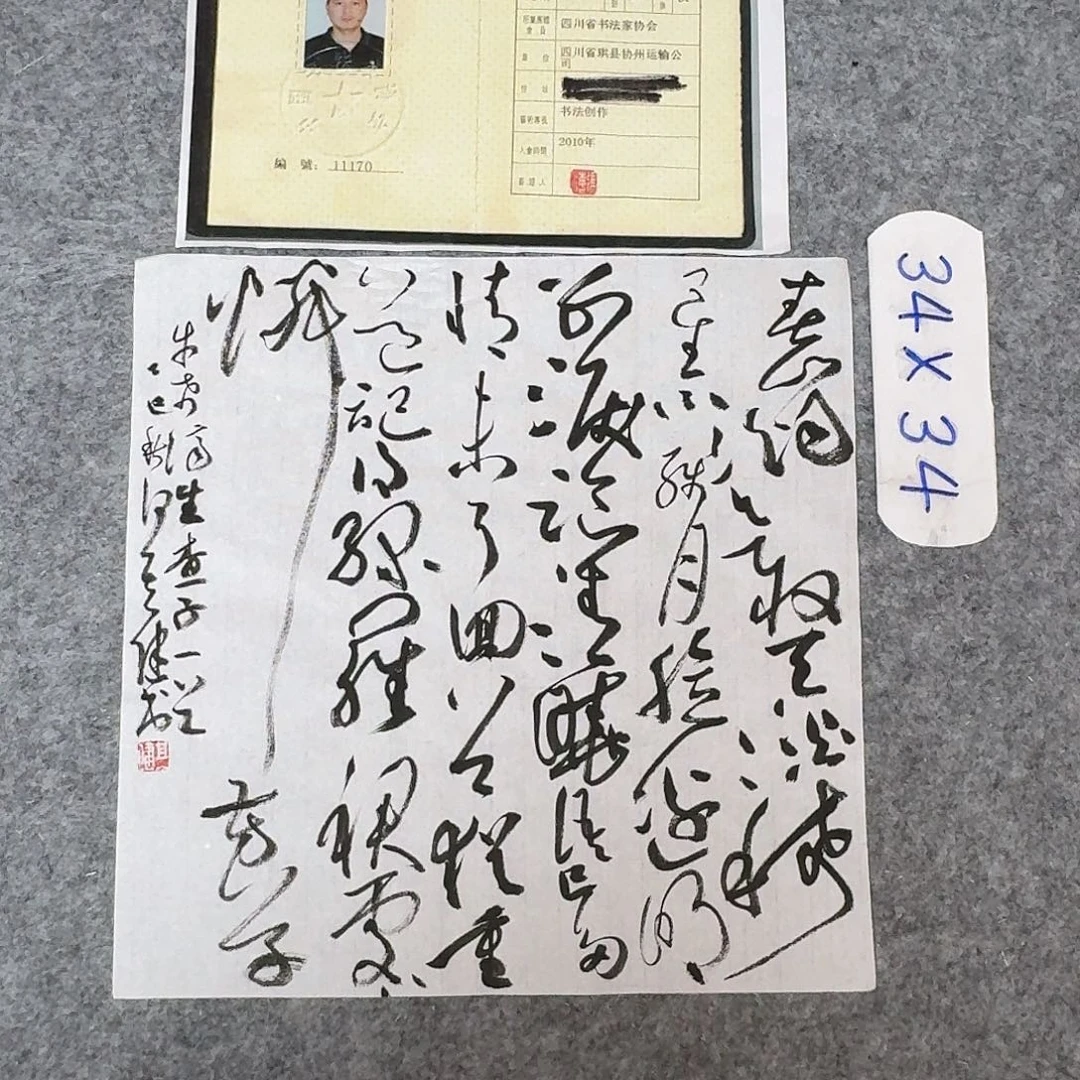 四川省书法家协会
四川省珙县协州运输公
司
书法创作
入會時間 2010年
編 號: 11170
34 X 34
春山烟欲收天淡稀
星小残月脸边明
别泪临清晓语已多
情未了回首犹重
道记得绿罗裙处处
怜芳草
牛希济生查子一首
乙巳秋